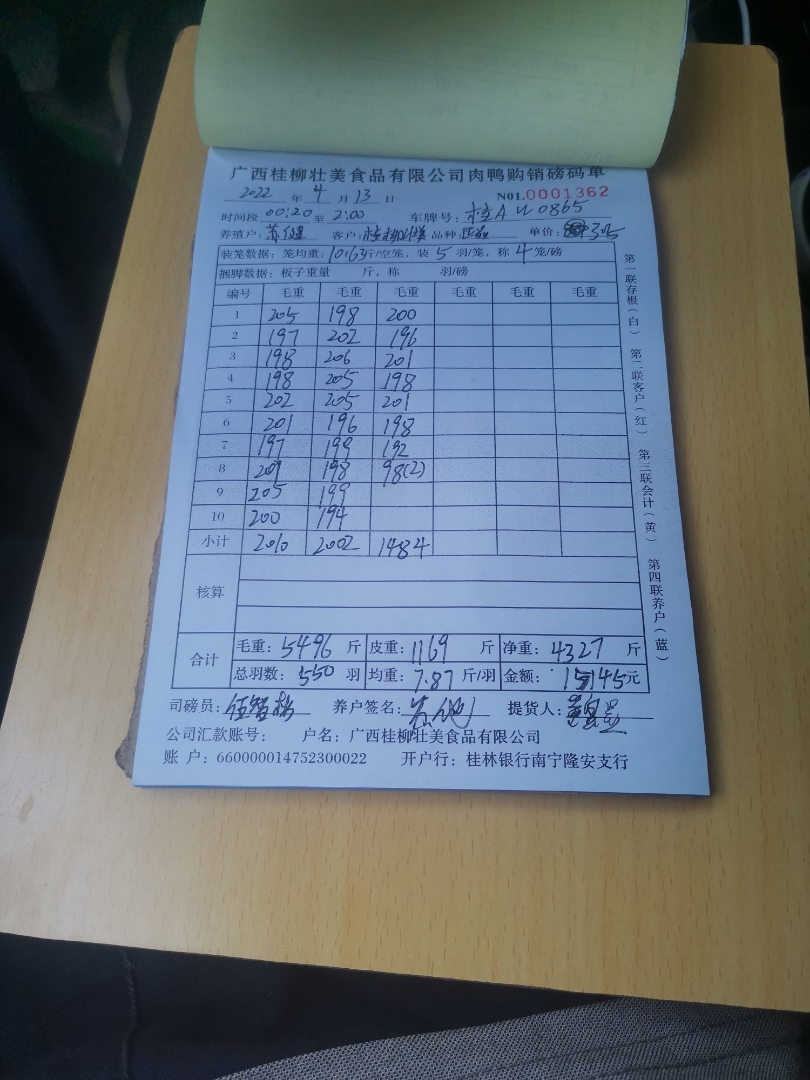 广西桂柳壮美食品有限公司肉鸭购销磅码单
2022 年 4 月 13 日 N01.0001362
时间段 00:20 至 2:00 车牌号: 桂A U0865
养殖户: 苏健 客户: 品种 单价: 3.5
装笼数据: 笼均重: 10.63 斤/空笼, 装 5 羽/笼, 称 4 笼/磅
捆脚数据: 板子重量 斤, 称 羽/磅
编号 毛重 毛重 毛重 毛重 毛重 毛重
1 205 198 200
2 197 202 196
3 198 206 201
4 198 205 198
5 202 205 201
6 201 196 198
7 197 199 192
8 207 198 98(2)
9 205 199
10 200 194
小计 2010 2002 1484
核算
合计 毛重: 5496 斤 皮重: 1169 斤 净重: 4327 斤
总羽数: 550 羽 均重: 7.87 斤/羽 金额: 15145元
司磅员: 养户签名: 提货人:
公司汇款账号: 户名: 广西桂柳壮美食品有限公司
账 户: 660000014752300022 开户行: 桂林银行南宁隆安支行
第一联存根(白) 第二联客户(红) 第三联会计(黄) 第四联养户(蓝)